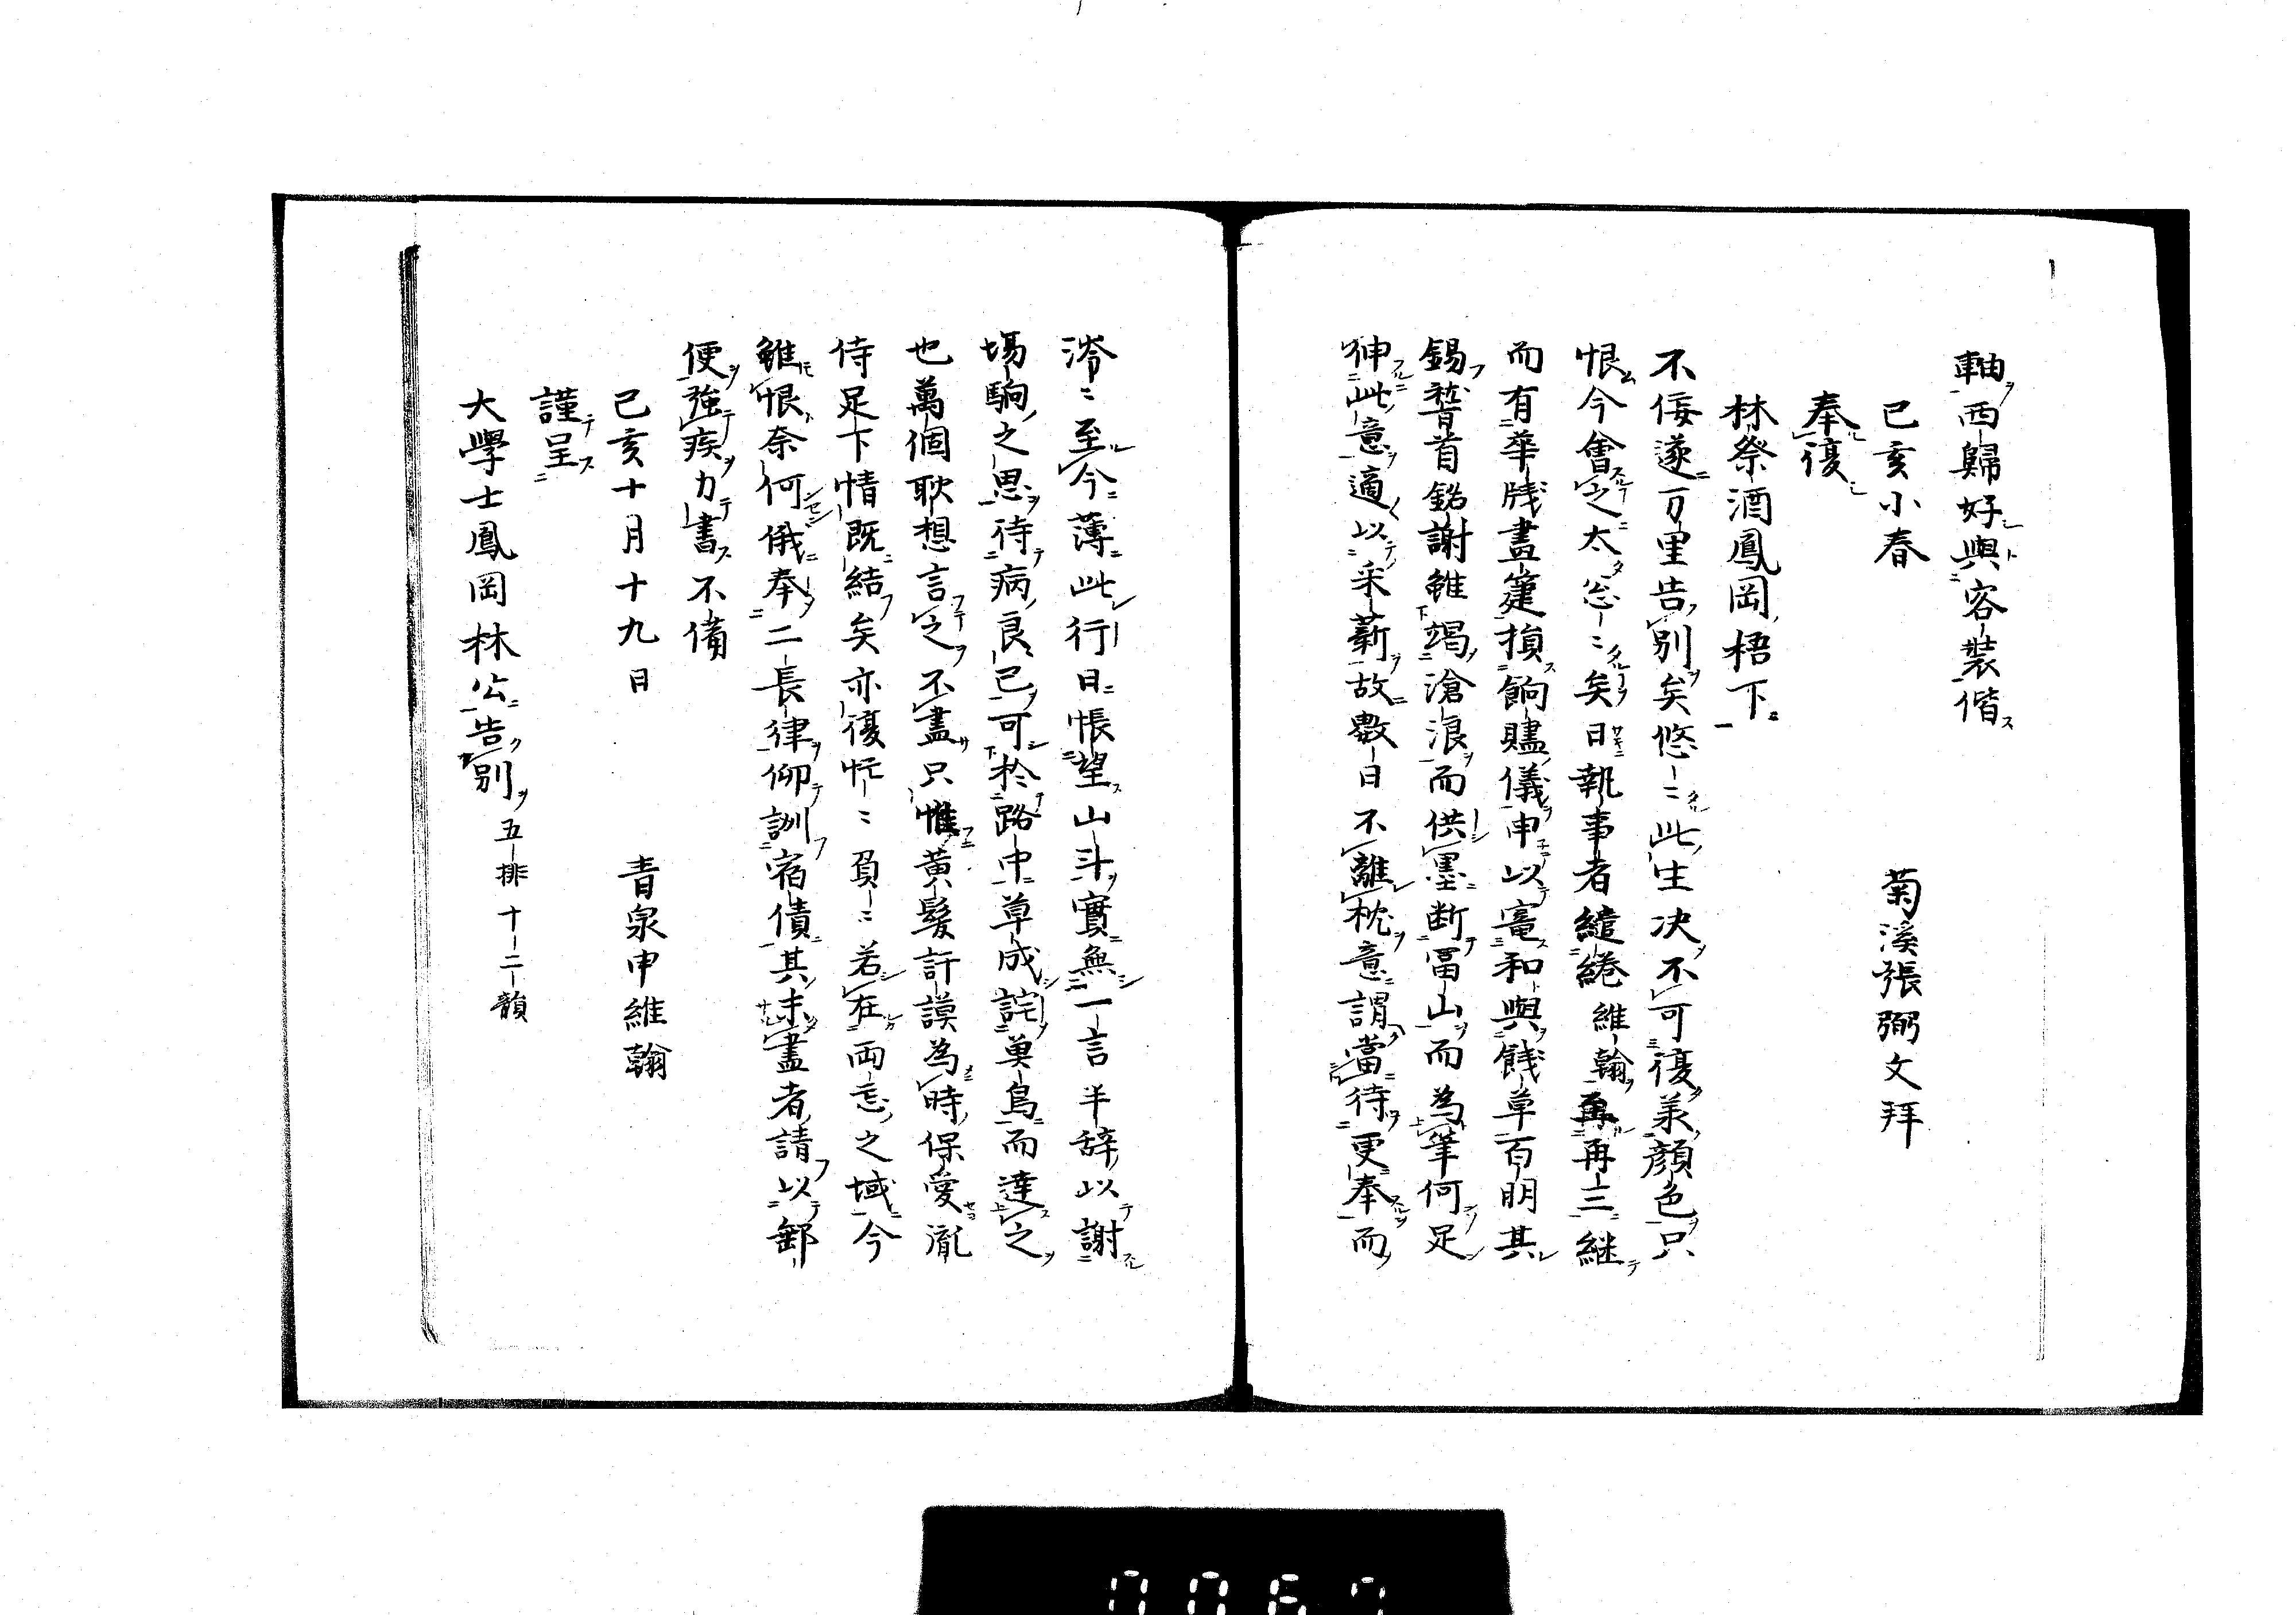 軸西歸好與客裝偕
己亥小春　菊溪張弼文拜
奉復
林祭酒鳳岡梧下
不佞遂万里告別矣悠〻此生决不可復羨顏色只
恨今會之太怱〻矣日執事者繾綣維翰再三継
而有華牋畫箑損餉贐儀申以寵和與餞草百明其
錫稽首銘謝雖竭滄浪而供墨断冨山而為筆何足
伸此意適以采薪故數日不離枕意謂當待更奉而
滯〻至今薄此行日悵望山斗實無一言半辞以謝
場駒之思待病良已可於路中草成詫莫鳥而達之
也萬個耿想言之不盡只惟黃髮訏謨為時保愛胤
侍足下情既結矣亦復忙〻負〻若在両忘之域今
雖恨奈何俄奉二長律仰訓宿債其未盡者請以郵
便強疾力書不備
己亥十月十九日　青泉申維翰
謹呈
大學士鳳岡林公告別五排十二韻